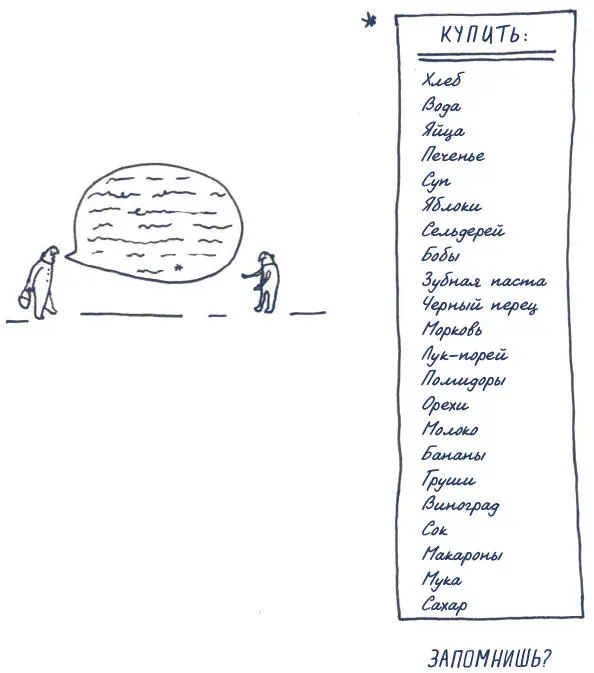 *
КУПИТЬ:
Хлеб
Вода
Яйца
Печенье
Суп
Яблоки
Сельдерей
Бобы
Зубная паста
Черный перец
Морковь
Лук-порей
Помидоры
Орехи
Молоко
Бананы
Груши
Виноград
Сок
Макароны
Мука
Сахар
ЗАПОМНИШЬ?